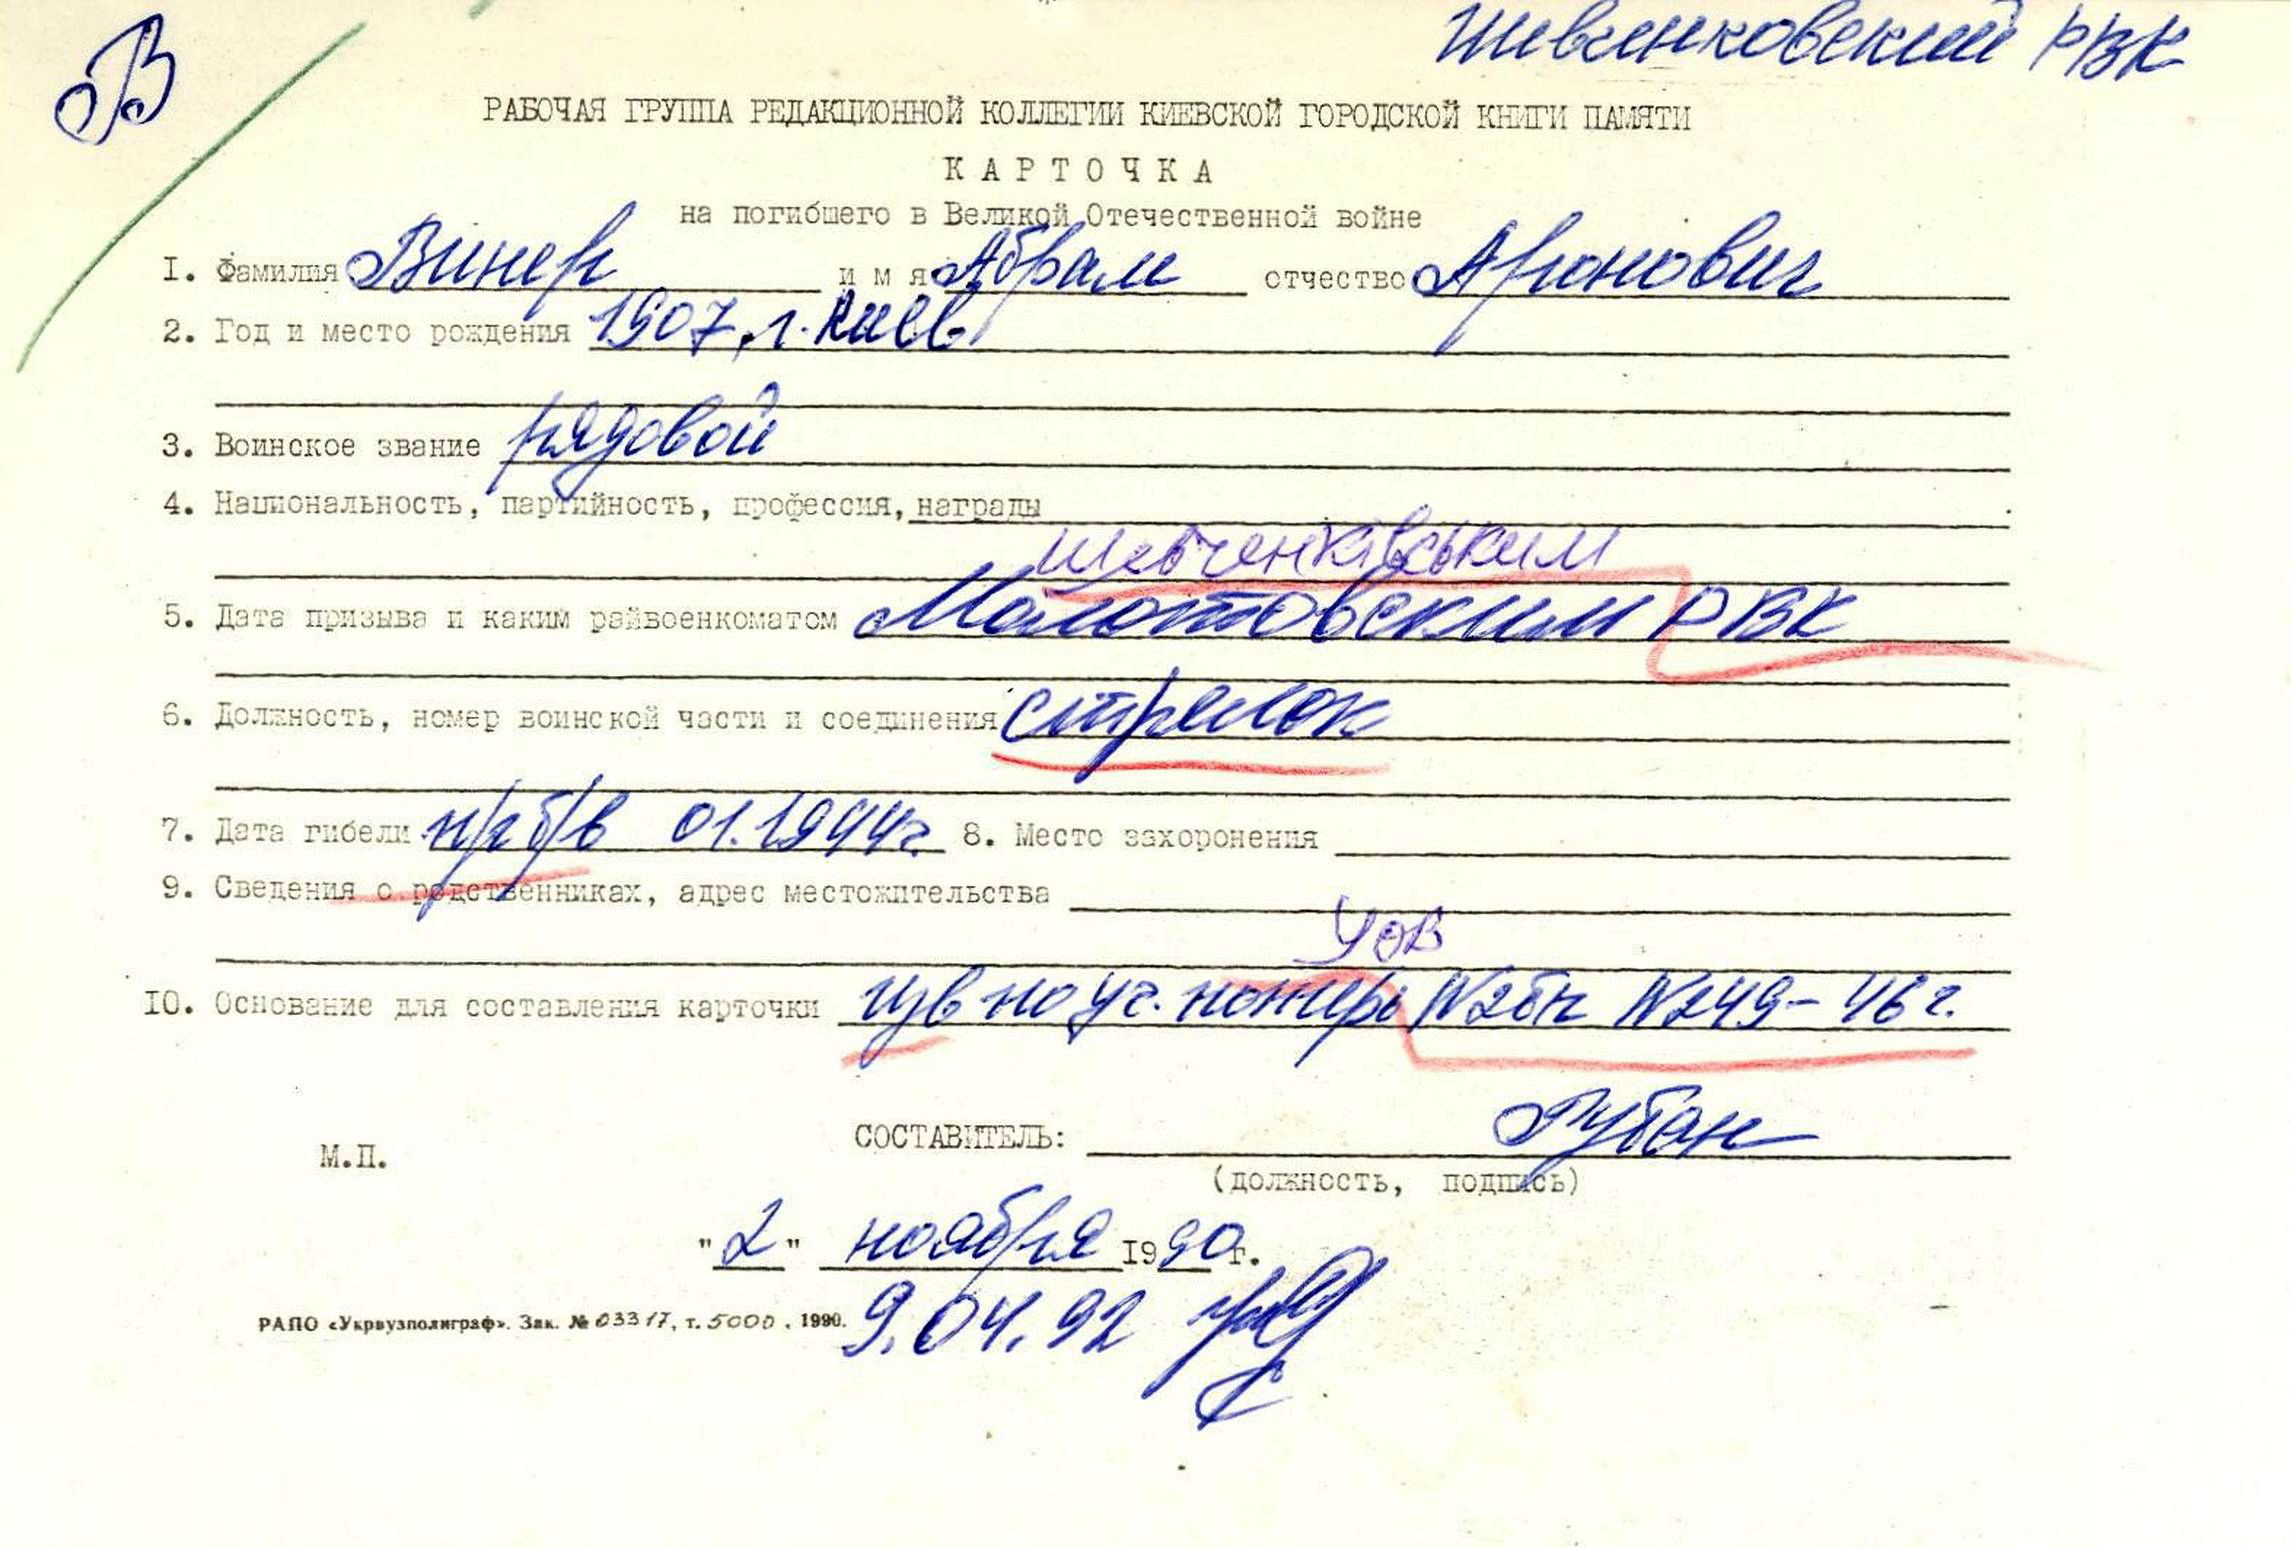 В
Шевченковский РВК
РАБОЧАЯ ГРУППА РЕДАКЦИОННОЙ КОЛЛЕГИИ КИЕВСКОЙ ГОРОДСКОЙ КНИГИ ПАМЯТИ
КАРТОЧКА
на погибшего в Великой Отечественной войне
1. Фамилия Винер имя Абрам отчество Аронович
2. Год и место рождения 1907, г. Киев
3. Воинское звание рядовой
4. Национальность, партийность, профессия, награды
шевченківським
5. Дата призыва и каким райвоенкоматом Молотовским РВК
6. Должность, номер воинской части и соединения стрелок
7. Дата гибели п/г б/в 01.1944г. 8. Место захоронения
9. Сведения о родственниках, адрес местожительства
УОВ
10. Основание для составления карточки изв по уч. потерь №249-46г.
СОСТАВИТЕЛЬ: Рубан
М.П.
(должность, подпись)
"2" ноября 1990г.
РАПО «Укрвузполиграф». Зак. № 03317, т. 5000. 1990.
9.04.92